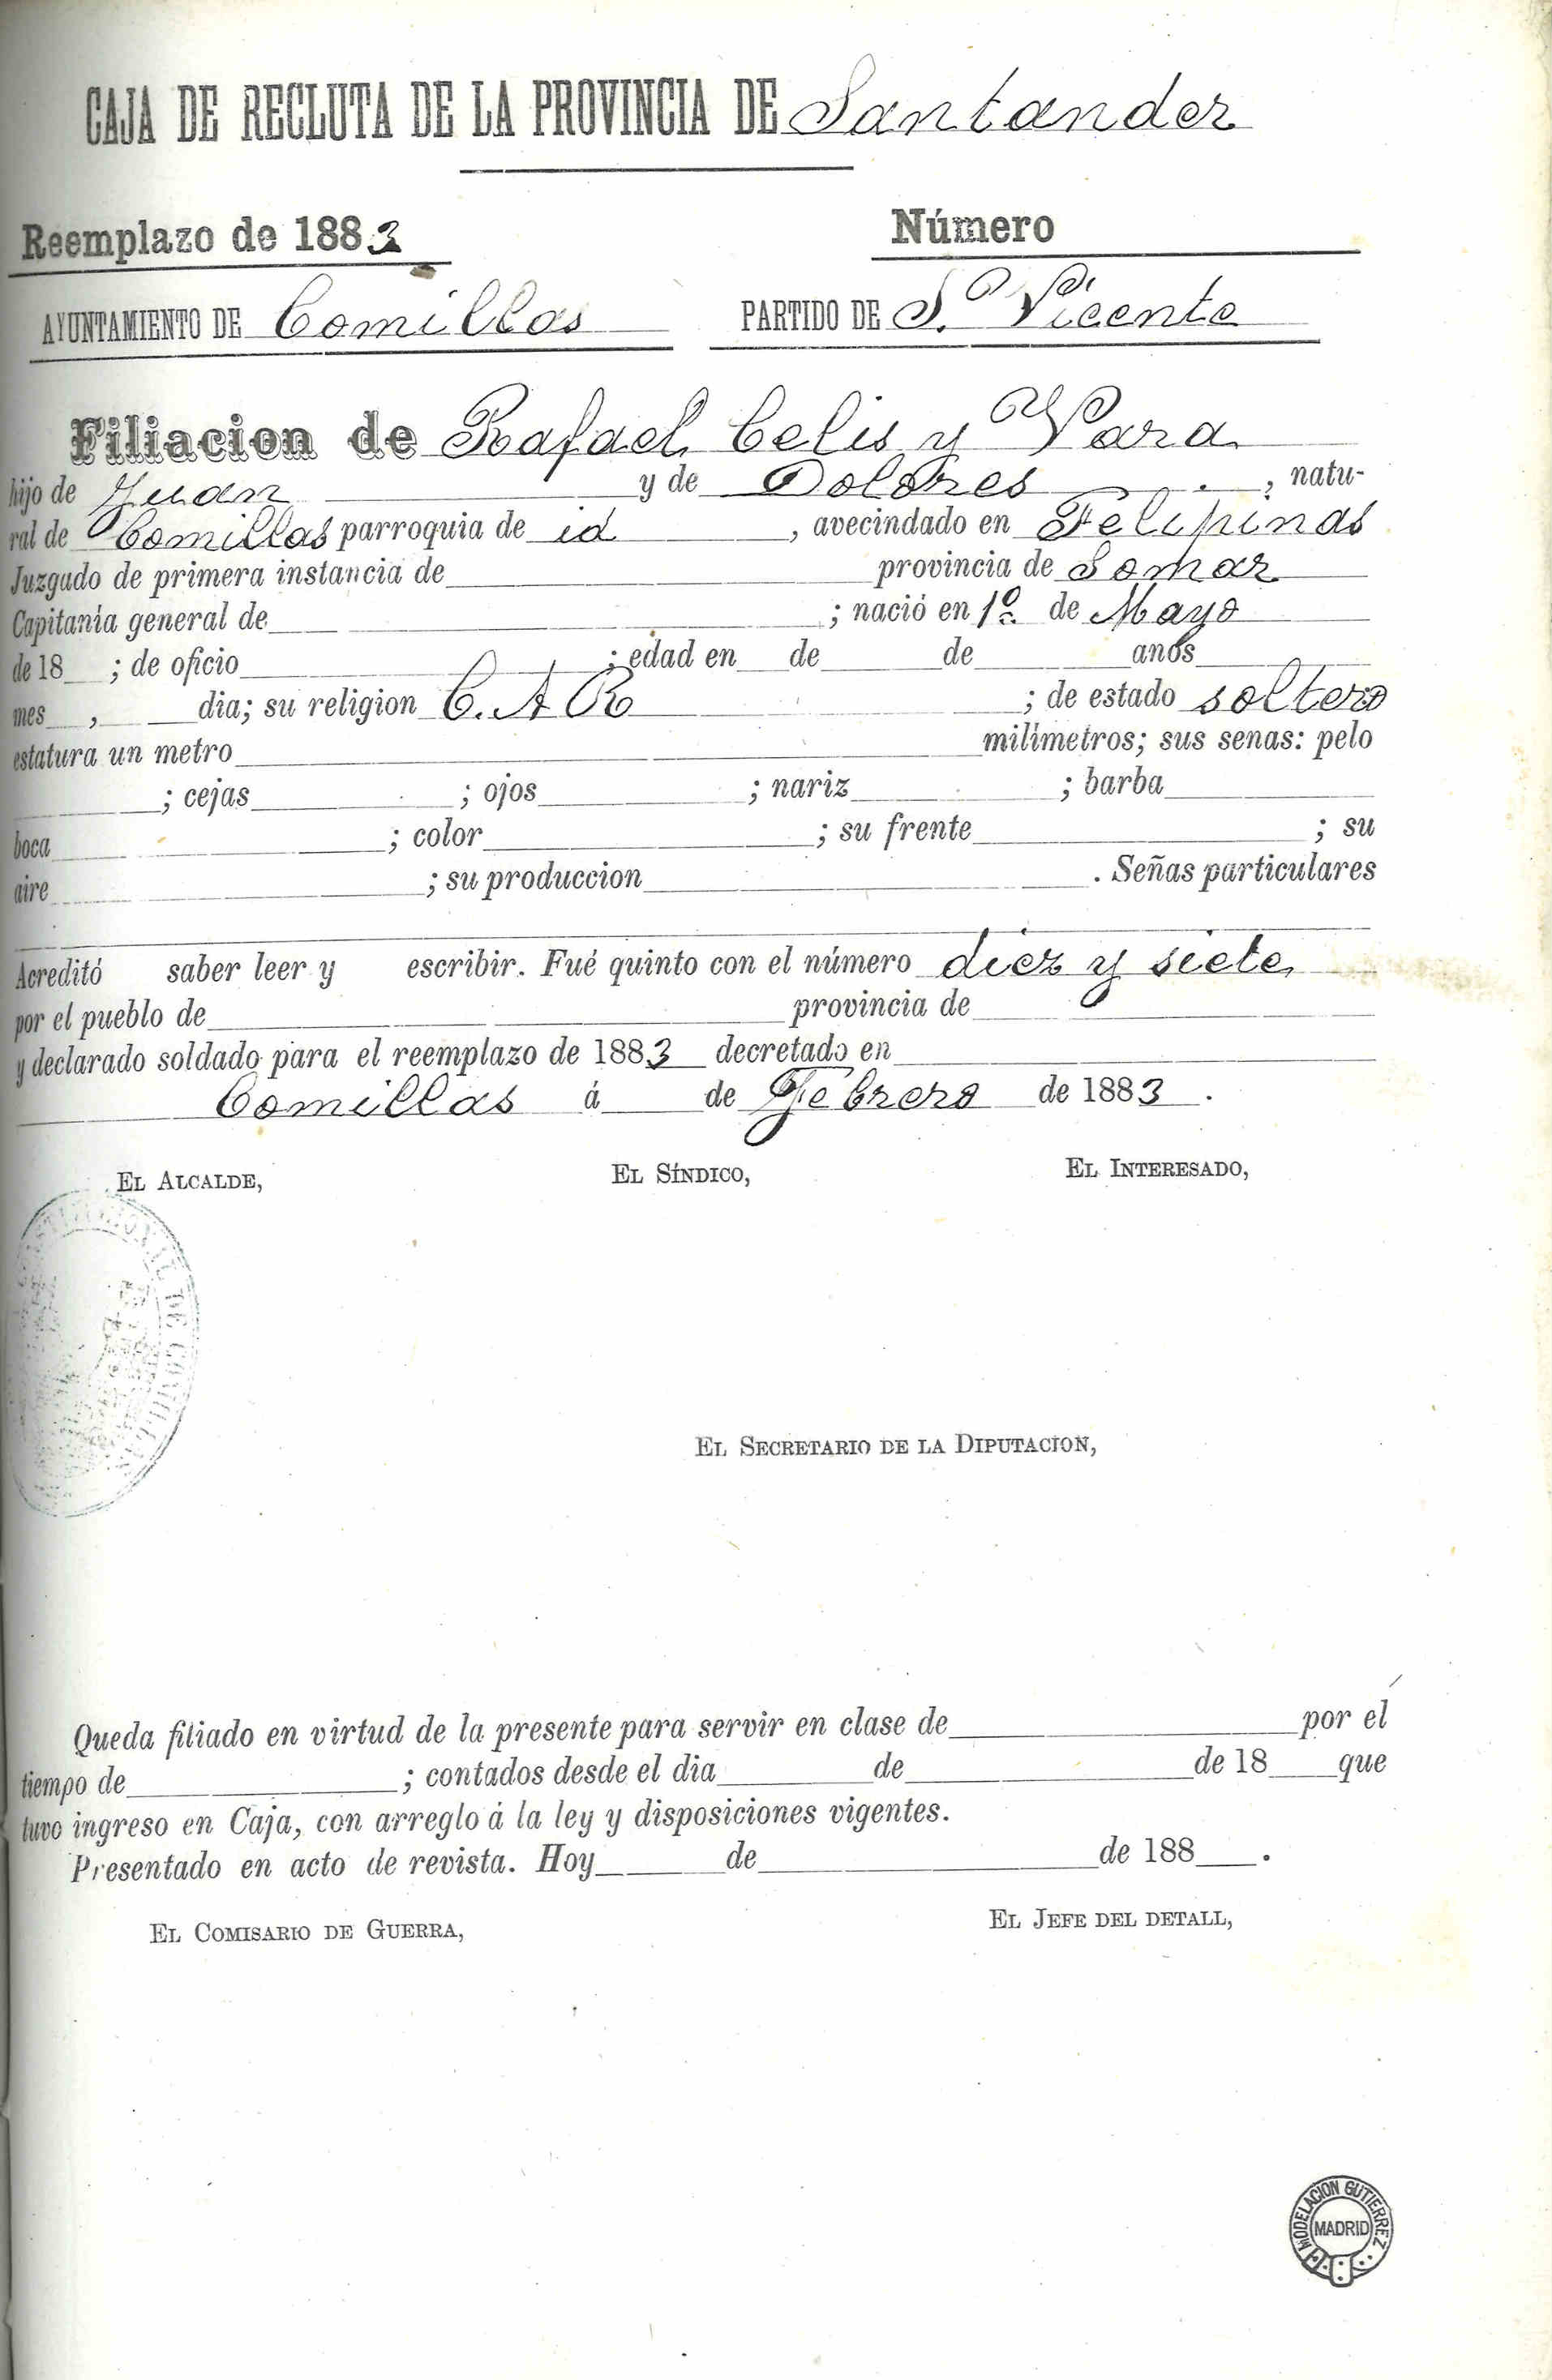 CAJA DE RECLUTA DE LA PROVINCIA DE Santander
Reemplazo de 1883 Número
AYUNTAMIENTO DE Comillas PARTIDO DE Sn. Vicente
Filiacion de Rafael Celis y Vara
hijo de Juan y de Dolores, natu-
ral de Comillas parroquia de id, avecindado en Felipinas
Juzgado de primera instancia de provincia de Somar
Capitanía general de ; nació en 1º de Mayo
de 18 ; de oficio ; edad en de de anos
mes , dia; su religion C. A R ; de estado soltero
estatura un metro milímetros; sus senas: pelo
; cejas ; ojos ; nariz ; barba
boca ; color ; su frente ; su
aire ; su produccion . Señas particulares
Acreditó saber leer y escribir. Fué quinto con el número diez y siete
por el pueblo de provincia de
y declarado soldado para el reemplazo de 1883 decretado en
Comillas á de Febrero de 1883.
EL ALCALDE, EL SÍNDICO, EL INTERESADO,
DE COMILLAS
EL SECRETARIO DE LA DIPUTACION,
Queda filiado en virtud de la presente para servir en clase de por el
tiempo de ; contados desde el dia de de 18 que
tuvo ingreso en Caja, con arreglo á la ley y disposiciones vigentes.
Presentado en acto de revista. Hoy de de 188 .
EL COMISARIO DE GUERRA, EL JEFE DEL DETALL,
MODELACION GUTIERREZ
MADRID